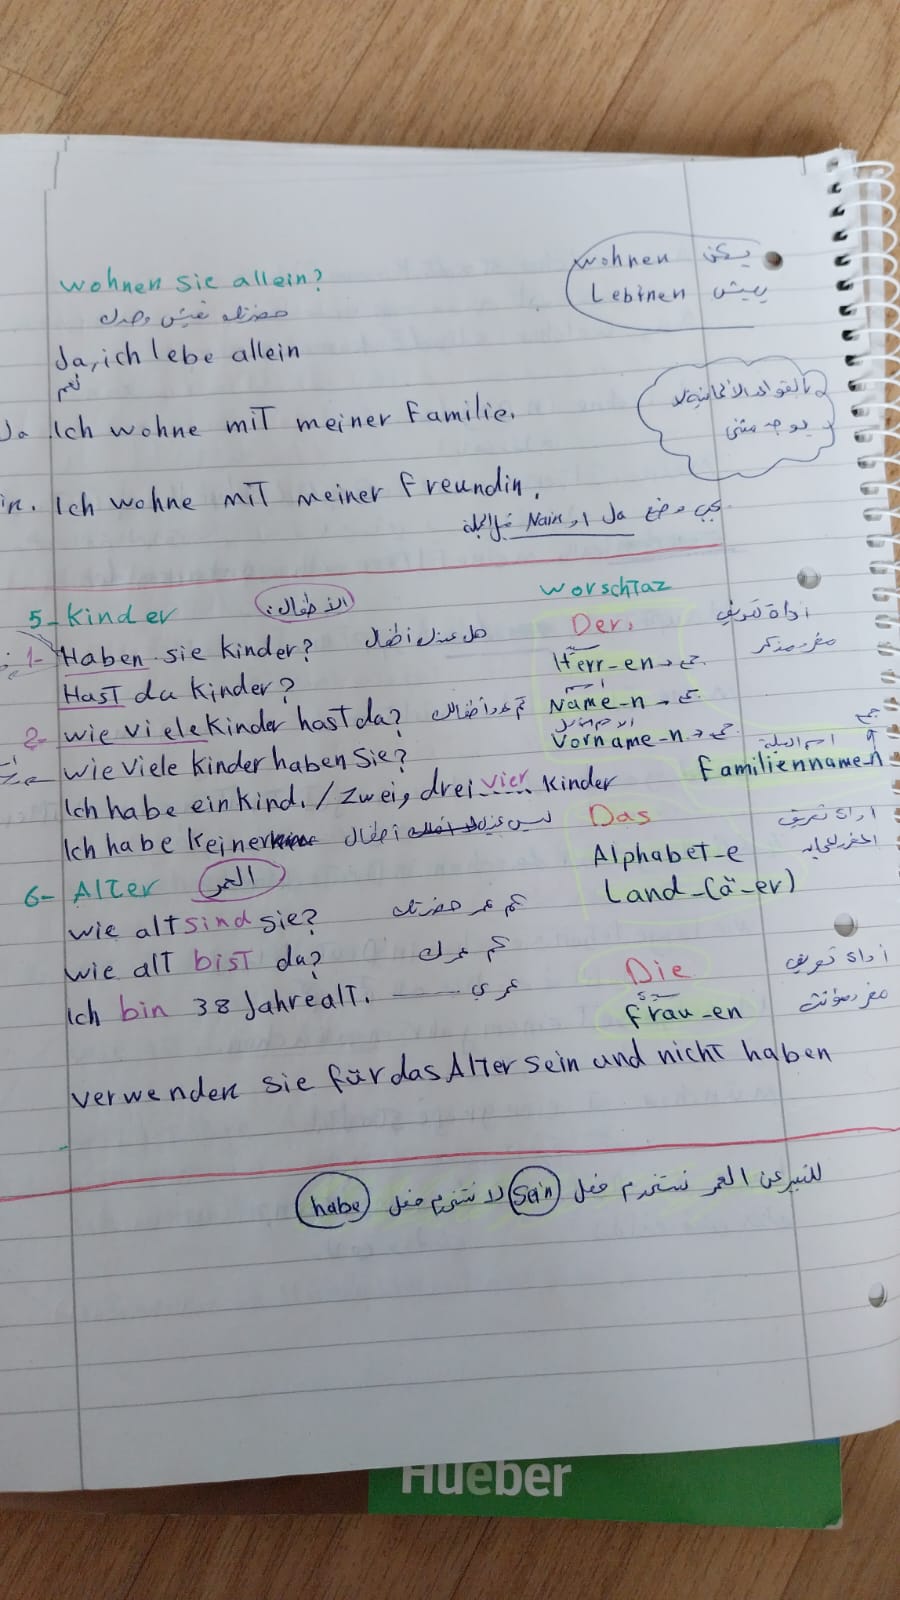 wohnen sie allein?
حضرتك تعيش وحدك
wohnen يسكن
Lebnen يعيش
Ja, ich lebe allein
نعم
Ja Ich wohne mit meiner Familie.
بالقواعد الألمانية لا
يوجد مثنى
in. Ich wohne mit meiner Freundin.
يجب وضع Ja او Nain قبل الجملة
5- Kinder الأطفال:
1- Haben sie Kinder? هل عندك أطفال
Hast du Kinder?
2- wie viele Kinder hast da? كم عدد أطفالك
wie viele Kinder haben Sie?
Ich habe ein Kind. / zwei, drei vier Kinder
Ich habe Keiner ليس عندي أطفال
6- Alter العمر
wie alt sind sie? كم عمر حضرتك
wie alt bist da? كم عمرك
Ich bin 38 Jahre alt. عمري
worschtaz
Der, أداة تعريف
مفرد مذكر
Herr-en → جمع
اسم
Name-n → جمع
Vorname-n → جمع
اسم العيلة جمع
Familienname-n
Das أداة تعريف
Alphabet-e
Land-(ä-er)
Die أداة تعريف
مفرد مؤنث
سيدة
frau-en
verwenden sie für das Alter sein und nicht haben
للتعبير عن العمر نستخدم فعل sein لا نستخدم فعل habe
Hueber